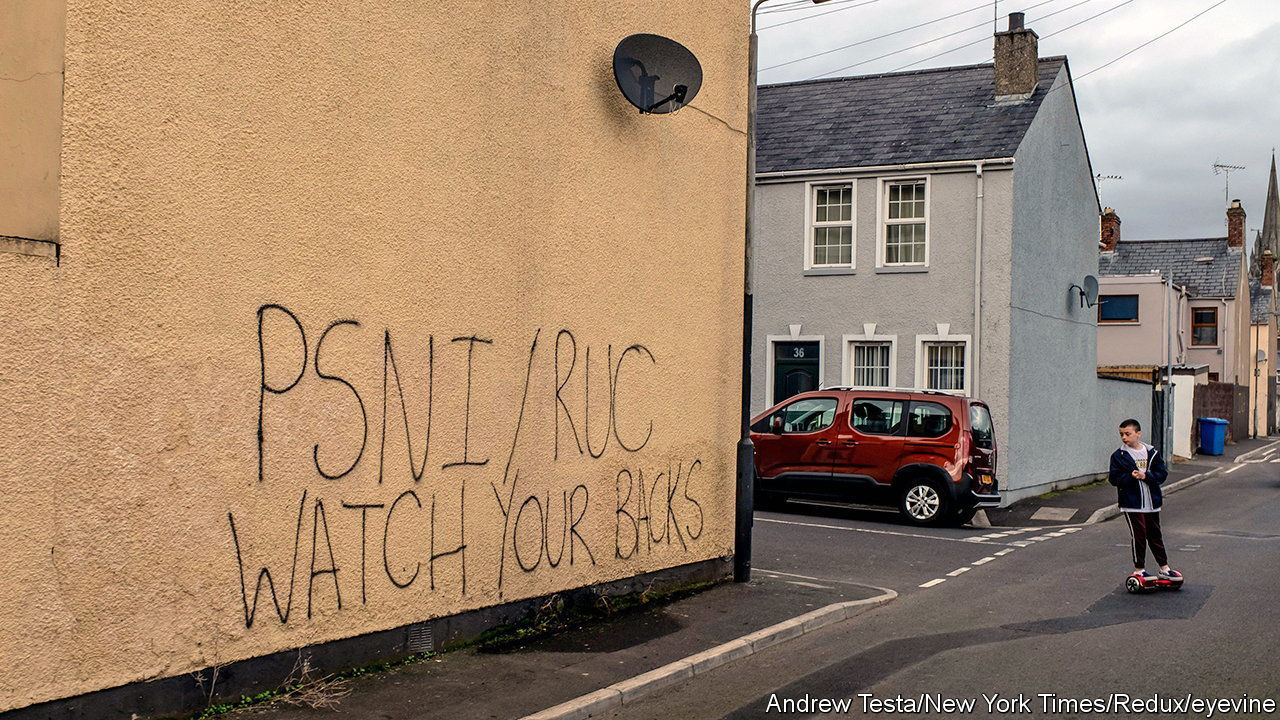 PSNI/RUC
WATCH YOUR BACKS
36
Andrew Testa/New York Times/Redux/eyevine